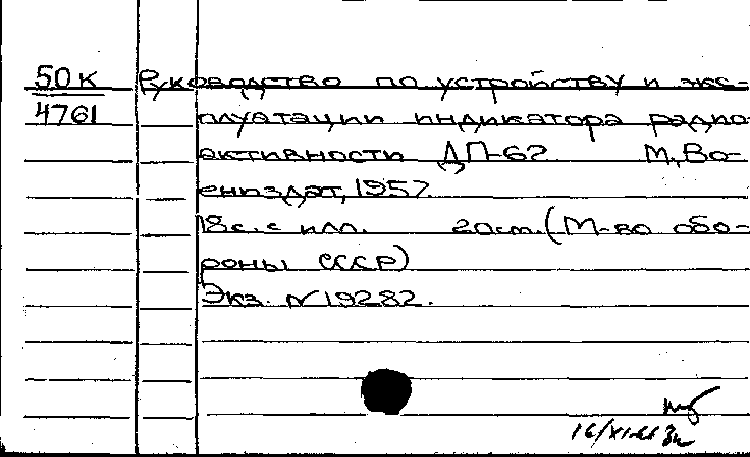 50к Руководство по устройству и экс-
4761 плуатации индикатора радио-
активности ДП-62 М, Во-
ениздат, 1957.
18 с. с илл. 20 см. (М-во обо-
роны СССР)
Экз. №19282.